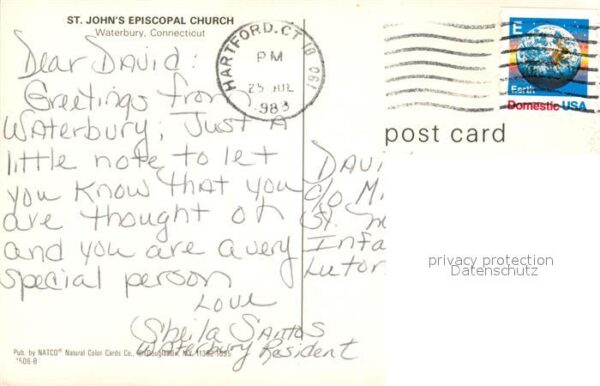 ST. JOHN'S EPISCOPAL CHURCH
Waterbury, Connecticut
Dear David:
Greetings from
Waterbury; Just A
little note to let
you know that you
are thought of
and you are a very
special person
Love
Sheila Santos
Waterbury Resident
Pub. by NATCO® Natural Color Cards Co., NY 11362-1695
1508-B
HARTFORD, CT 061
PM
25 JUL
E
Earth
Domestic USA
post card
DAVI
c/o Mi
St.
Infa
Lutor
privacy protection
Datenschutz